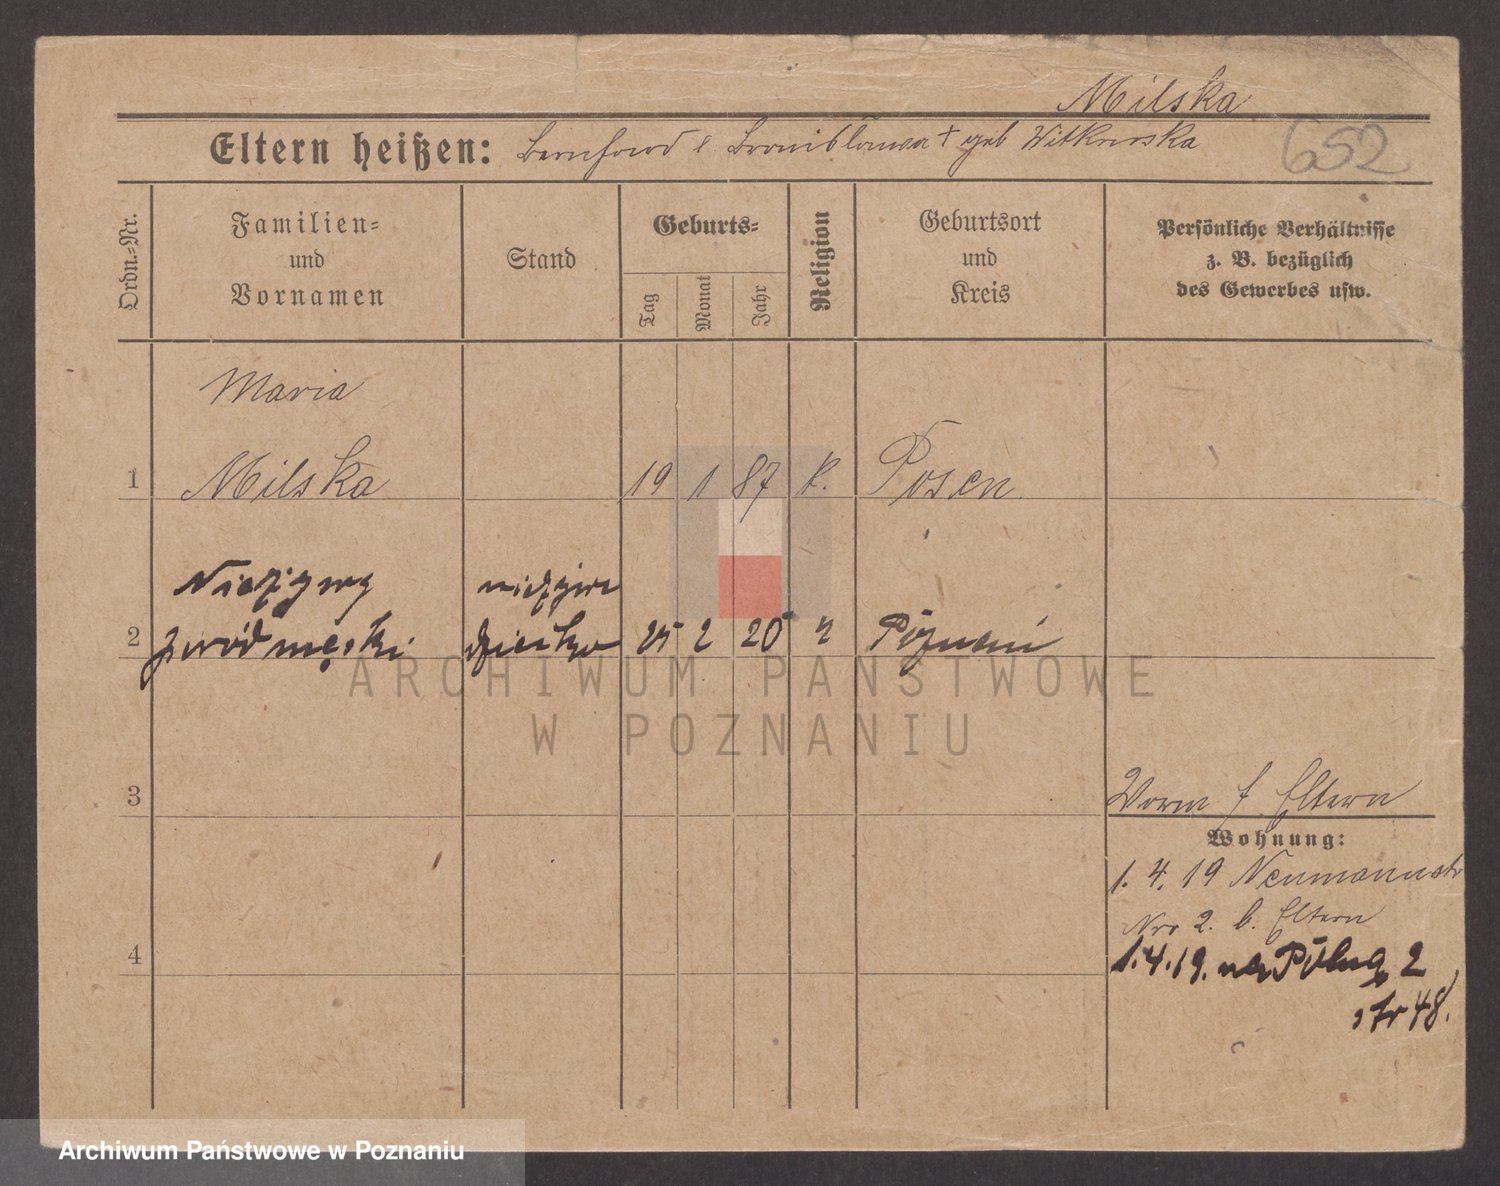 Milska
Eltern heißen: Bernhard & Bronislawa † geb Witkowska
652
Ordn.-Nr.
Familien-
und
Vornamen
Stand
Geburts-
Tag
Monat
Jahr
Religion
Geburtsort
und
Kreis
Persönliche Verhältnisse
z. B. bezüglich
des Gewerbes usw.
Maria
1 Milska 19 1 87 K. Posen
Nieżywy nieżywe
2 płód męski dziecko 25 2 20 Poznań
ARCHIWUM PAŃSTWOWE
W POZNANIU
3
Eltern
Wohnung:
1. 4. 19 Neumannstr
Nro 2. b. Eltern
4
1.4.19. na Polną 2
str 48.
Archiwum Państwowe w Poznaniu